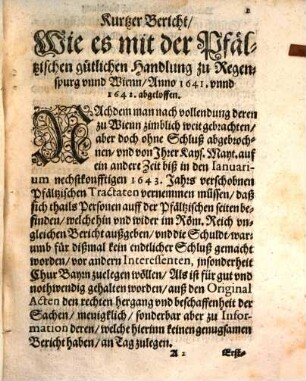 1
Kurtzer Bericht/
Wie es mit der Pfäl-
tzischen gütlichen Handlung zu Regen-
spurg vnnd Wienn/ Anno 1641. vnnd
1642. abgeloffen.
NAchdem man nach vollendung deren
zu Wienn zimblich weit gebrachten/
aber doch ohne Schluß abgebroch-
nen/ vnd von Ihrer Kays. Mayt. auf
ein andere Zeit biß in den Ianuari-
um nechstkonfftigen 1643. Jahrs verschobnen
Pfältzischen Tractaten vernemmen müssen/ daß
sich theils Personen auff der Pfältzischen seiten be-
finden/ welche hin vnd wider im Röm. Reich vn-
gleichen Bericht außgeben/ vnd die Schuldt/ war-
umb für dißmal kein endtlicher Schluß gemacht
worden/ vor andern Interessenten, jnsonderheit
Chur Bayrn zuelegen wöllen/ Als ist für gut vnd
nothwendig gehalten worden/ auß den Original
Acten den rechten hergang vnd beschaffenheit der
Sachen/ menigklich/ sonderbar aber zu Infor-
mation deren/ welche hierinn keinen genugsamen
Bericht haben/ an Tag zulegen.
A 2 Erst-